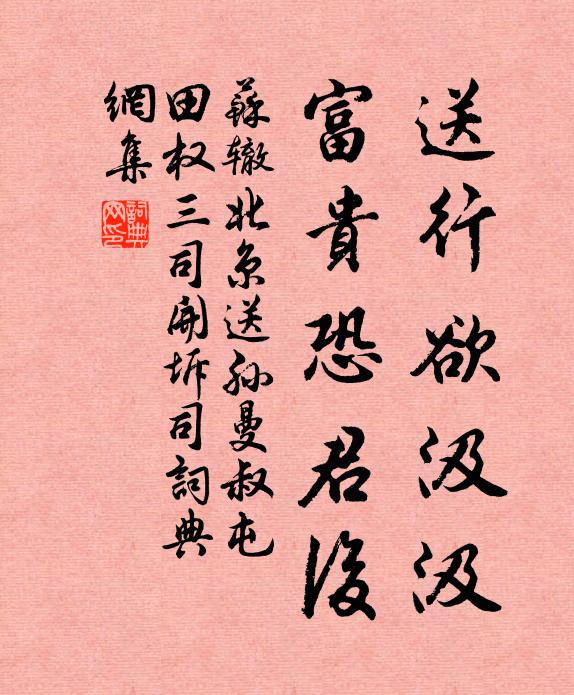 送行欲汲汲
富貴恐君後
蘇辙北京送孙曼叔屯
田权三司開坼司詞典
網集
詞典
网印